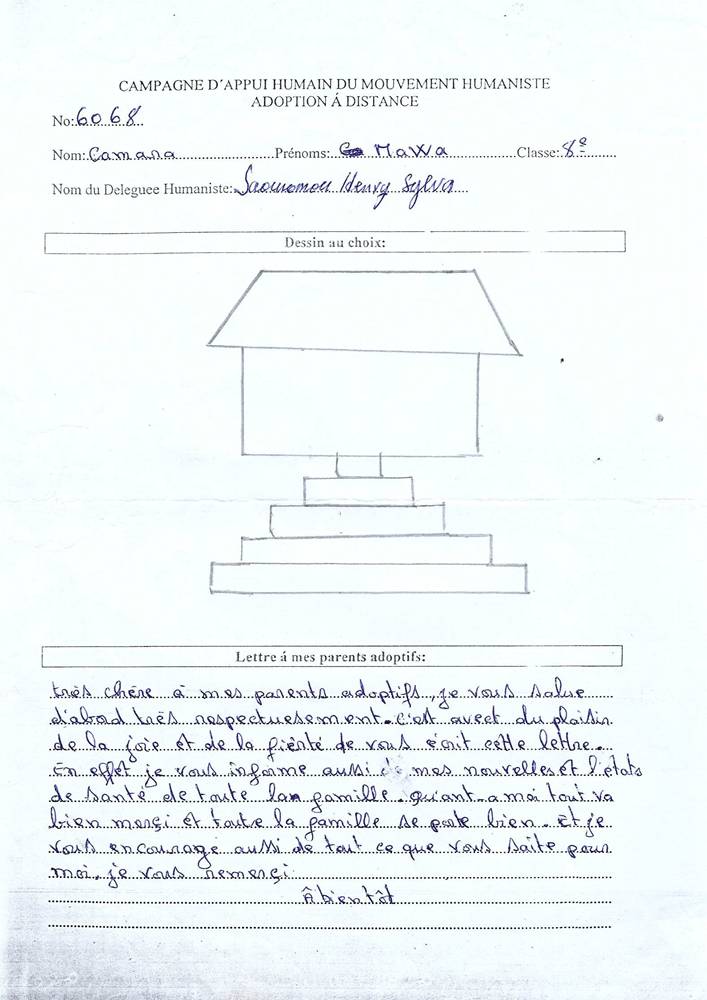 CAMPAGNE D´APPUI HUMAIN DU MOUVEMENT HUMANISTE
ADOPTION Á DISTANCE
No: 6068
Nom: Camara Prénoms: Mawa Classe: 8e
Nom du Deleguee Humaniste: Saoumou Henry Sylva
Dessin au choix:
Lettre á mes parents adoptifs:
très chère à mes parents adoptifs, je vous salue
d'abord très respectuesement. C'est avect du plaisir
de la joie et de la fièrté de vous écrit cette lettre.
En effet je vous informe aussi de mes nouvelles et l'états
de santé de toute la famille. Qu'ant-a moi tout va
bien merçi et toute la famille se porte bien. Et je
vous encourage aussi de tout ce que vous saite pour
moi. je vous remerçi
Â bientôt